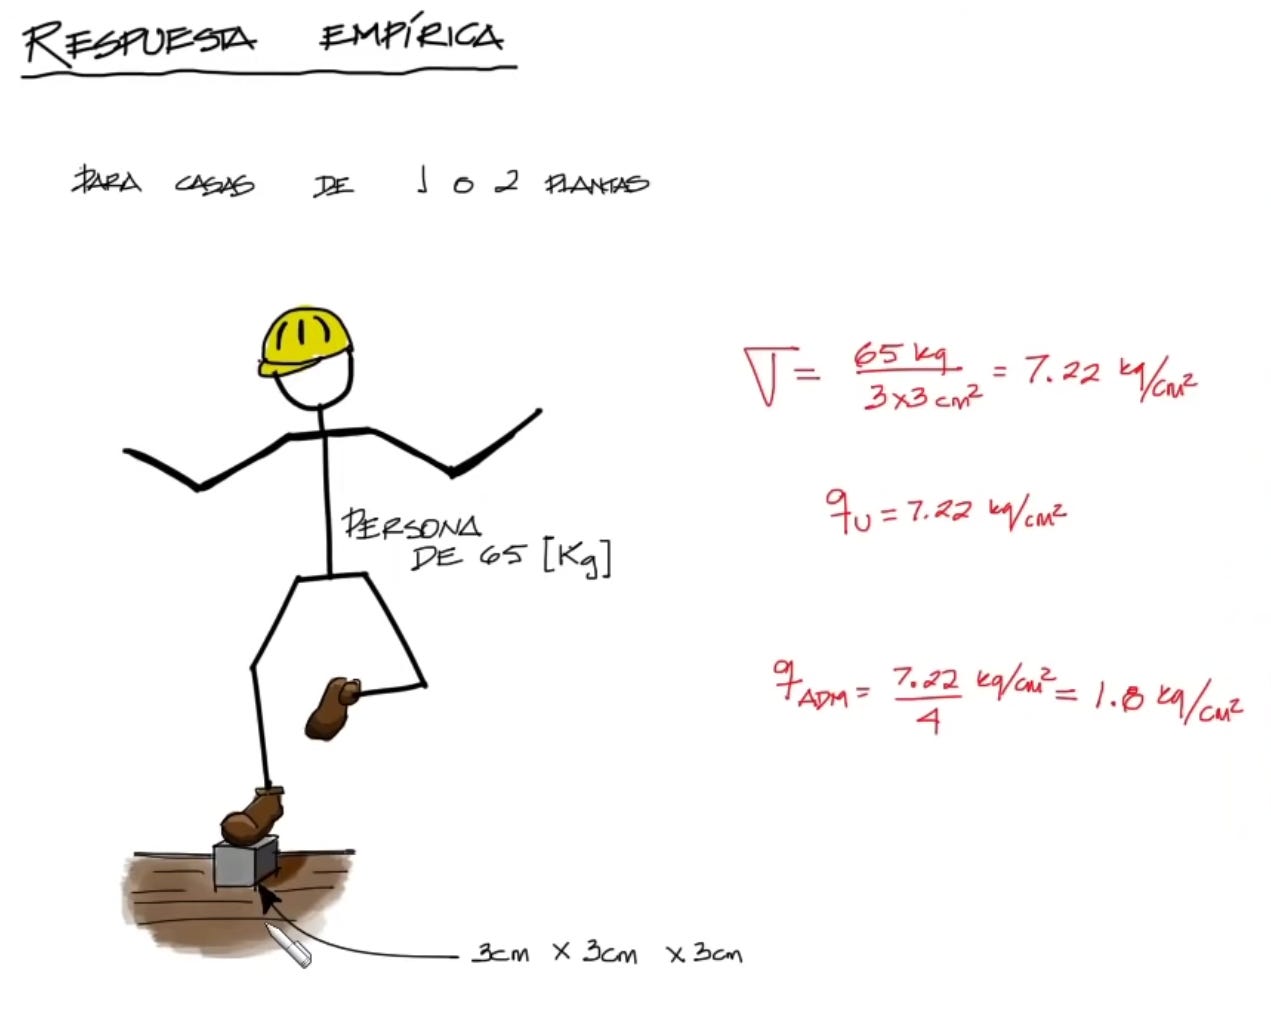 RESPUESTA EMPÍRICA
PARA CASAS DE 1 O 2 PLANTAS
PERSONA
DE 65 [Kg]
3cm x 3cm x 3cm
σ = 65 kg / 3x3 cm² = 7.22 kg/cm²
qU = 7.22 kg/cm²
qADM = 7.22 kg/cm² / 4 = 1.8 kg/cm²